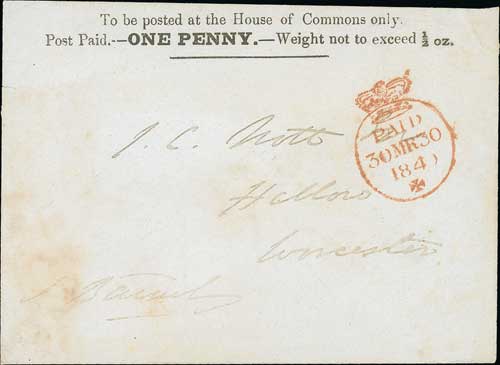 To be posted at the House of Commons only.
Post Paid.—ONE PENNY.—Weight not to exceed ½ oz.
PAID
30MR30
1840
J. C. Nott
Hallow
Worcester